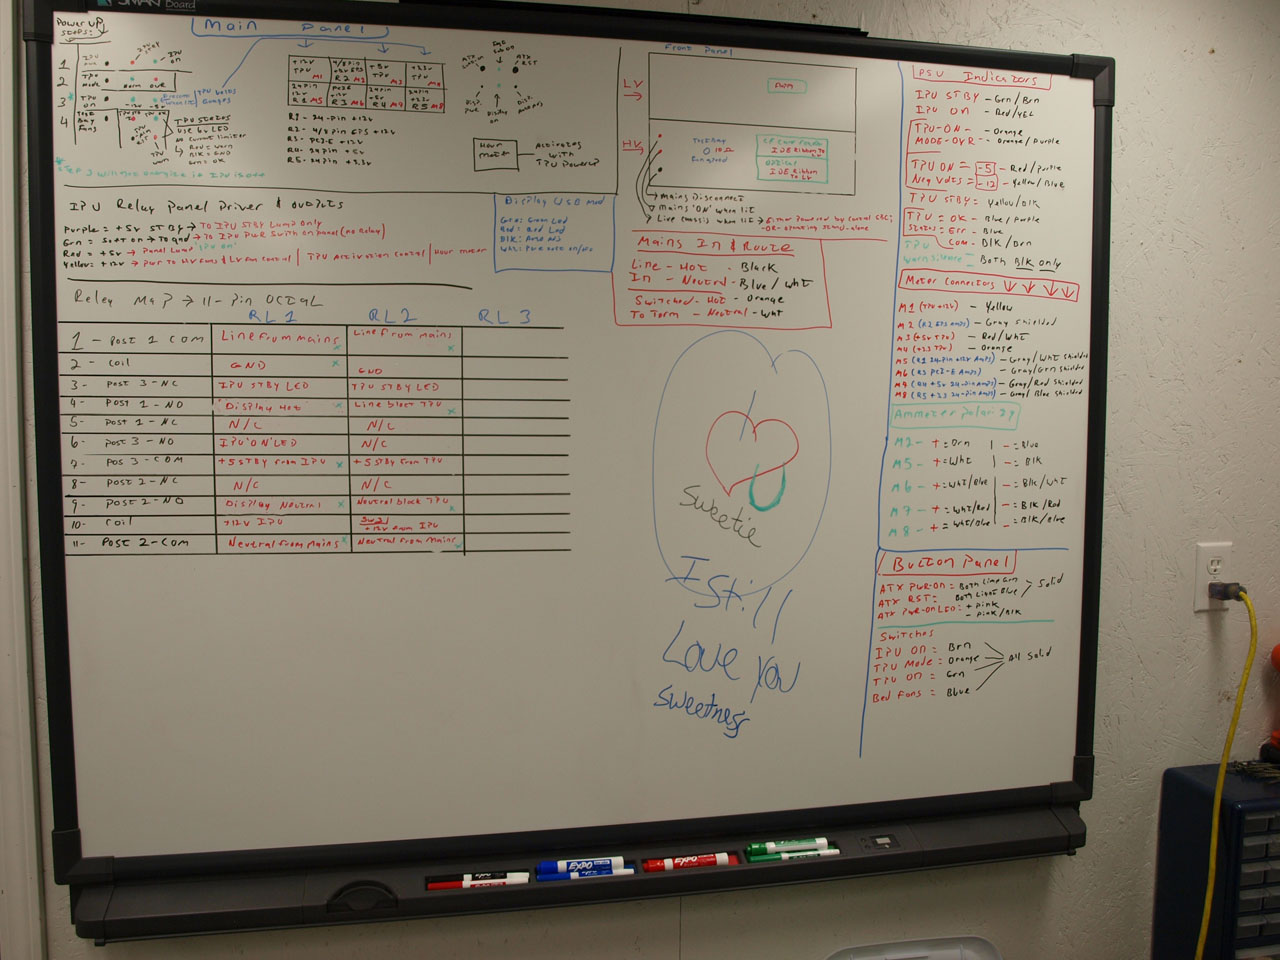 SMART Board
Power up
steps:
Main Panel
1
2
3
4
IPU
ON
TPU
Mode
TPU
ON
Test
Bay
Fans
Norm OVR
TPU STATUS
Use by LED
Red = Worn
Blk = GND
Grn = OK
+12V
TPU
M1
R2 M2
+5V
TPU
M3
+3.3V
TPU
M4
24 pin
+12V
R1 M5
PCIE
+12V
R3 M6
24 pin
+5V
R4 M7
24 pin
+3.3V
R5 M8
R1 - 24 pin +12v
R2 - 4/8 pin EPS +12v
R3 - PCI-E +12v
R4 - 24 pin +5v
R5 - 24 pin +3.3v
ATX
RST
Hour
meter
Activates
with
TPU Power
Front Panel
LV
HV
Mains Disconnect
Mains 'ON' when lit
IDE Ribbon To
IDE Ribbon
To LV
IPU Relay Panel Driver & outputs
Purple = +5v STBY → To IPU STBY Lamp Only
Grn = Soft on → To gnd → To IPU PWR Switch on panel (no Relay)
Red = +5v → Panel Lamp 'IPU on'
Yellow = +12v → pwr To HV Fans & LV Fan Control | TPU Activation Control | Hour meter
Display USB Mod
Grn: Green Led
Red: Red Led
Mains In & Route
Line - Hot - Black
In - Neutral - Blue / Wht
Switched - Hot - Orange
To Term - Neutral - Wht
Relay Map → 11-Pin Octal
RL 1 RL 2 RL 3
1 - Post 1 COM Line from mains x Line from mains x
2 - Coil GND x GND
3 - Post 3 - NC IPU STBY LED TPU STBY LED
4 - Post 1 - NO Display Hot x Line block TPU x
5 - Post 1 - NC N/C N/C
6 - Post 3 - NO IPU 'ON' LED N/C
7 - Pos 3 - COM +5 STBY From IPU x +5 STBY From TPU
8 - Post 2 - NC N/C N/C
9 - Post 2 - NO Display Neutral x Neutral block TPU x
10 - Coil +12V IPU +12v from IPU
11 - Post 2 - COM Neutral from Mains x Neutral from Mains x
Sweetie
I Still
Love You
Sweetness
PSU Indicators
IPU STBY - Grn/Brn
IPU ON - Red/YEL
TPU-ON - - Orange
MODE-OVR - - Orange/Purple
TPU ON = -5 - Red/Purple
Neg Volts = -12 - Yellow/Blue
TPU STBY = Yellow/Blk
TPU = OK - Blue/Purple
Status = Err - Blue
TPU Com - Blk/Brn
Both Blk only
Meter Connectors ↓ ↓ ↓ ↓
M1 (TPU +12v) - Yellow
M2 (R2 EPS Amps) - Gray shielded
M3 (+5v TPU) - Red/Wht
M4 (+3.3 TPU) - Orange
M5 (R1 24-pin +12v Amps) - Gray/Wht shielded
M6 (R3 PCI-E Amps) - Gray/Grn shielded
M7 (R4 +5v 24-pin Amps) - Gray/Red shielded
M8 (R5 +3.3 24-pin Amps) - Gray/Blue shielded
Ammeter Polarity
M2 - + = Brn | - = Blue
M5 - + = Wht | - = Blk
M6 - + = Wht/Blue - = Blk/Wht
M7 - + = Wht/Red - = Blk/Red
M8 - + = Wht/Blue - = Blk/Blue
Button Panel
ATX PWR-ON = Both Lime Grn
ATX RST = Both Light Blue
Solid
ATX PWR-ON LED: + Pink
- Pink/Blk
Switches
IPU ON = Brn
TPU Mode = Orange
TPU ON = Grn
Bed Fans = Blue
All Solid
EXPO
EXPO
EXPO